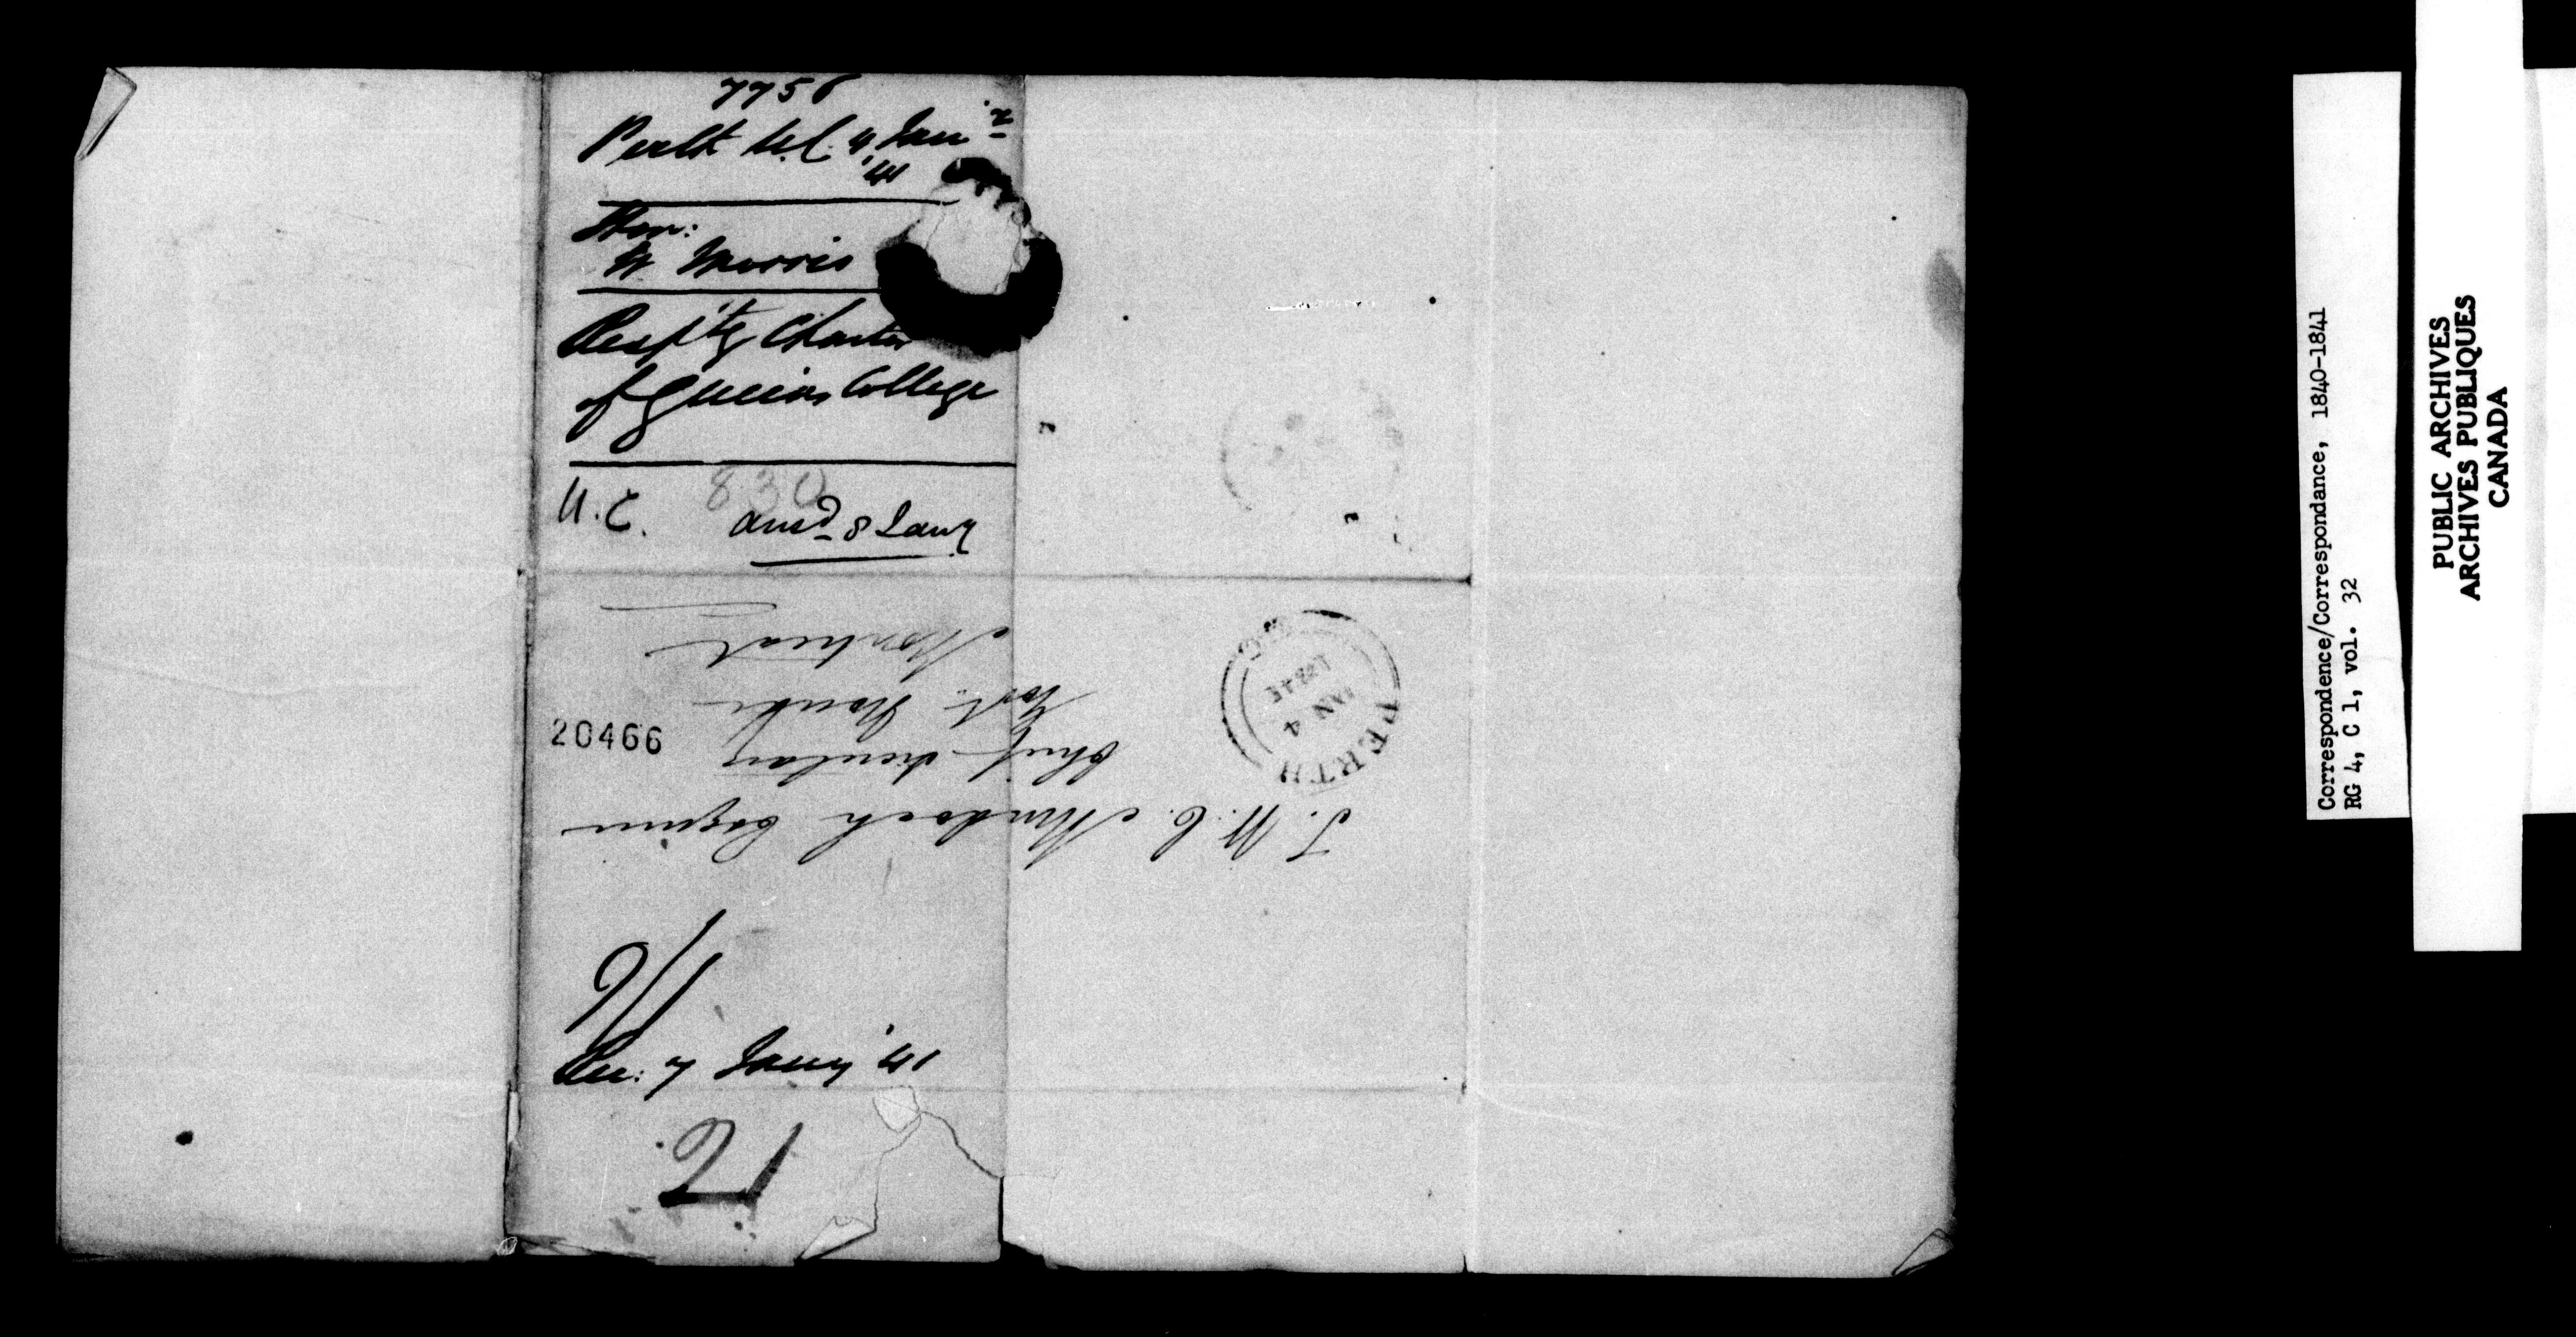 7756
Perth U.C. 4 Jany
'41
Hon:
W Morris
Respg Charter
of Queens College
U.C.
830
ansd 8 Jany
Montreal
Govt. House
Chief Secretary
T. W. C. Murdoch Esquire
20466
PERTH
JAN 4
1841
Rec: 7 Jany '41
Correspondence/Correspondance, 1840-1841
RG 4, C 1, vol. 32
PUBLIC ARCHIVES
ARCHIVES PUBLIQUES
CANADA